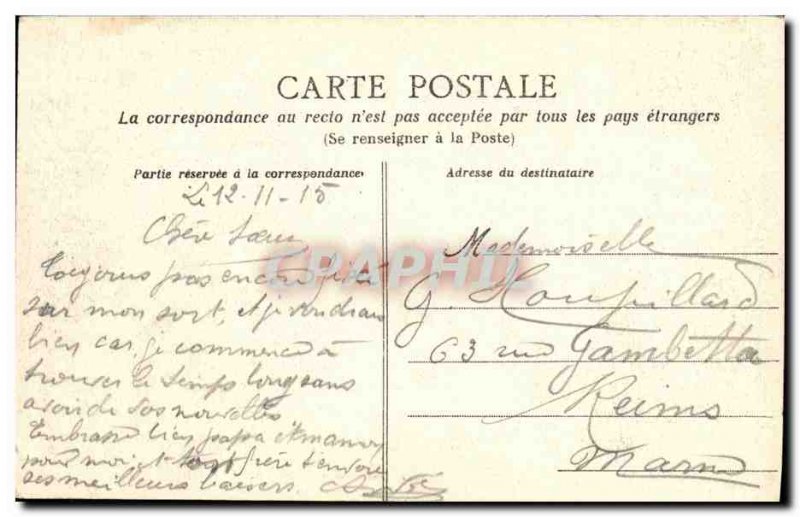 CARTE POSTALE
La correspondance au recto n'est pas acceptée par tous les pays étrangers
(Se renseigner à la Poste)
Partie réservée à la correspondance
Adresse du destinataire
Le 12-11-15
Chère Soeur
pas encore
sur mon sort, et je voudrais
bien car je commence à
trouver le temps long sans
avoir de vos nouvelles
Embrasse bien papa et maman
pour moi et ton frère t'envoie
ses meilleurs baisers.
Mademoiselle
G. Houpillard
63 rue Gambetta
Reims
Marne
CPAPHIL